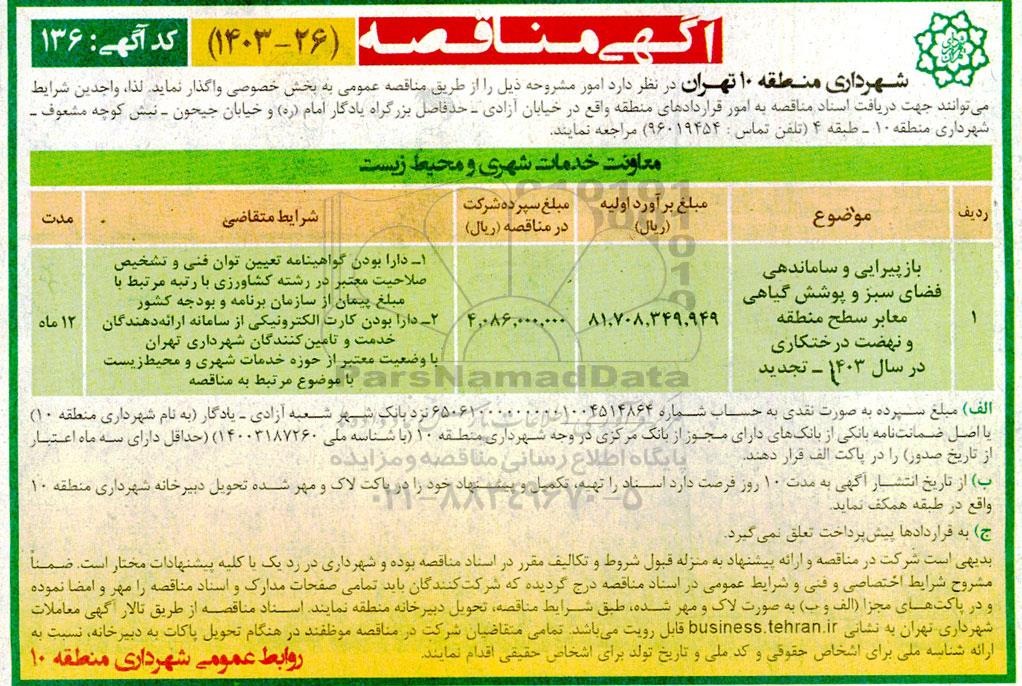 آگهی مناقصه
(۲۶-۱۴۰۳)
کد آگهی: ۱۳۶
شهرداری منطقه ۱۰ تهران در نظر دارد امور مشروحه ذیل را از طریق مناقصه عمومی به بخش خصوصی واگذار نماید. لذا، واجدین شرایط
می‌توانند جهت دریافت اسناد مناقصه به امور قراردادهای منطقه واقع در خیابان آزادی ـ حدفاصل بزرگراه یادگار امام (ره) و خیابان جیحون ـ نبش کوچه مشعوف ـ
شهرداری منطقه ۱۰ ـ طبقه ۴ (تلفن تماس: ۹۶۰۱۹۴۵۴) مراجعه نمایند.
معاونت خدمات شهری و محیط زیست
ردیف
موضوع
مبلغ برآورد اولیه
(ریال)
مبلغ سپرده شرکت
در مناقصه (ریال)
شرایط متقاضی
مدت
۱
بازپیرایی و ساماندهی
فضای سبز و پوشش گیاهی
معابر سطح منطقه
و نهضت درختکاری
در سال ۱۴۰۳ ـ تجدید
۸۱,۷۰۸,۳۴۹,۹۴۹
۴,۰۸۶,۰۰۰,۰۰۰
۱ـ دارا بودن گواهینامه تعیین توان فنی و تشخیص
صلاحیت معتبر در رشته کشاورزی با رتبه مرتبط با
مبلغ پیمان از سازمان برنامه و بودجه کشور
۲ـ دارا بودن کارت الکترونیکی از سامانه ارائه‌دهندگان
خدمت و تامین‌کنندگان شهرداری تهران
با وضعیت معتبر از حوزه خدمات شهری و محیط‌زیست
با موضوع مرتبط به مناقصه
۱۲ ماه
ParsNamadData
پایگاه اطلاع رسانی مناقصه و مزایده
۰۲۱-۸۸۳۴۹۶۷۰-۵
الف) مبلغ سپرده به صورت نقدی به حساب شماره نزد بانک شهر شعبه آزادی ـ یادگار (به نام شهرداری منطقه ۱۰)
یا اصل ضمانت‌نامه بانکی از بانک‌های دارای مجوز از بانک مرکزی در وجه شهرداری منطقه ۱۰ (با شناسه ملی ۱۴۰۰۳۱۸۷۲۶۰) (حداقل دارای سه ماه اعتبار
از تاریخ صدور) را در پاکت الف قرار دهند.
ب) از تاریخ انتشار آگهی به مدت ۱۰ روز فرصت دارد اسناد را تهیه، تکمیل و پیشنهاد خود را در پاکت لاک و مهر شده تحویل دبیرخانه شهرداری منطقه ۱۰
واقع در طبقه همکف نماید.
ج) به قراردادها پیش‌پرداخت تعلق نمی‌گیرد.
بدیهی است شرکت در مناقصه و ارائه پیشنهاد به منزله قبول شروط و تکالیف مقرر در اسناد مناقصه بوده و شهرداری در رد یک یا کلیه پیشنهادات مختار است. ضمناً
مشروح شرایط اختصاصی و فنی و شرایط عمومی در اسناد مناقصه درج گردیده که شرکت‌کنندگان باید تمامی صفحات مدارک و اسناد مناقصه را مهر و امضا نموده
و در پاکت‌های مجزا (الف و ب) به صورت لاک و مهر شده، طبق شرایط مناقصه، تحویل دبیرخانه منطقه نمایند. اسناد مناقصه از طریق تالار آگهی معاملات
شهرداری تهران به نشانی business.tehran.ir قابل رویت می‌باشد. تمامی متقاضیان شرکت در مناقصه موظفند در هنگام تحویل پاکات به دبیرخانه، نسبت به
ارائه شناسه ملی برای اشخاص حقوقی و کد ملی و تاریخ تولد برای اشخاص حقیقی اقدام نمایند.
روابط عمومی شهرداری منطقه ۱۰